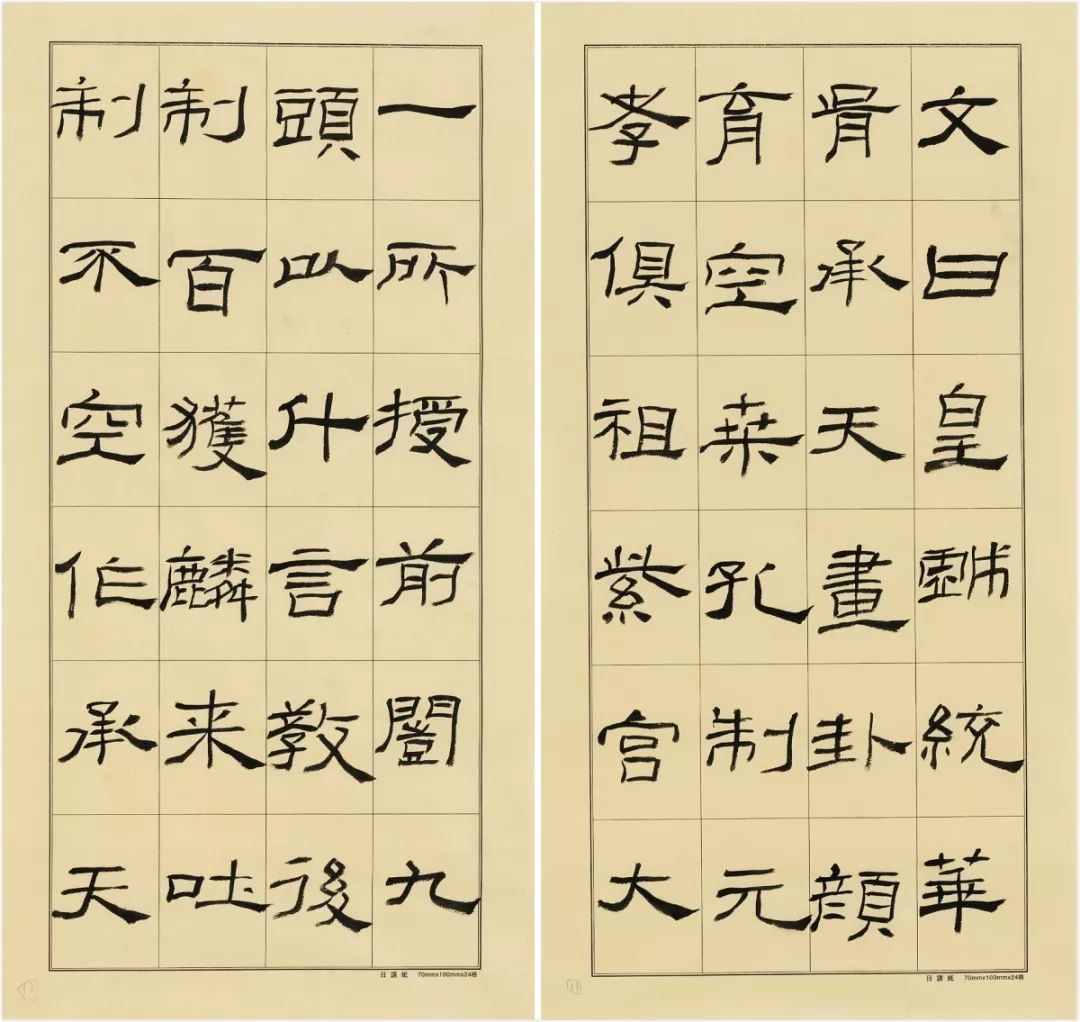 文曰皇戲統華
胥承天畫卦顏
育空桒孔制元
孝俱祖紫宮大
日課紙 70mmx100mmx24格
11
一所授前闓九
頭以什言教後
制百獲麟来吐
制不空作承天
日課紙 70mmx100mmx24格
12